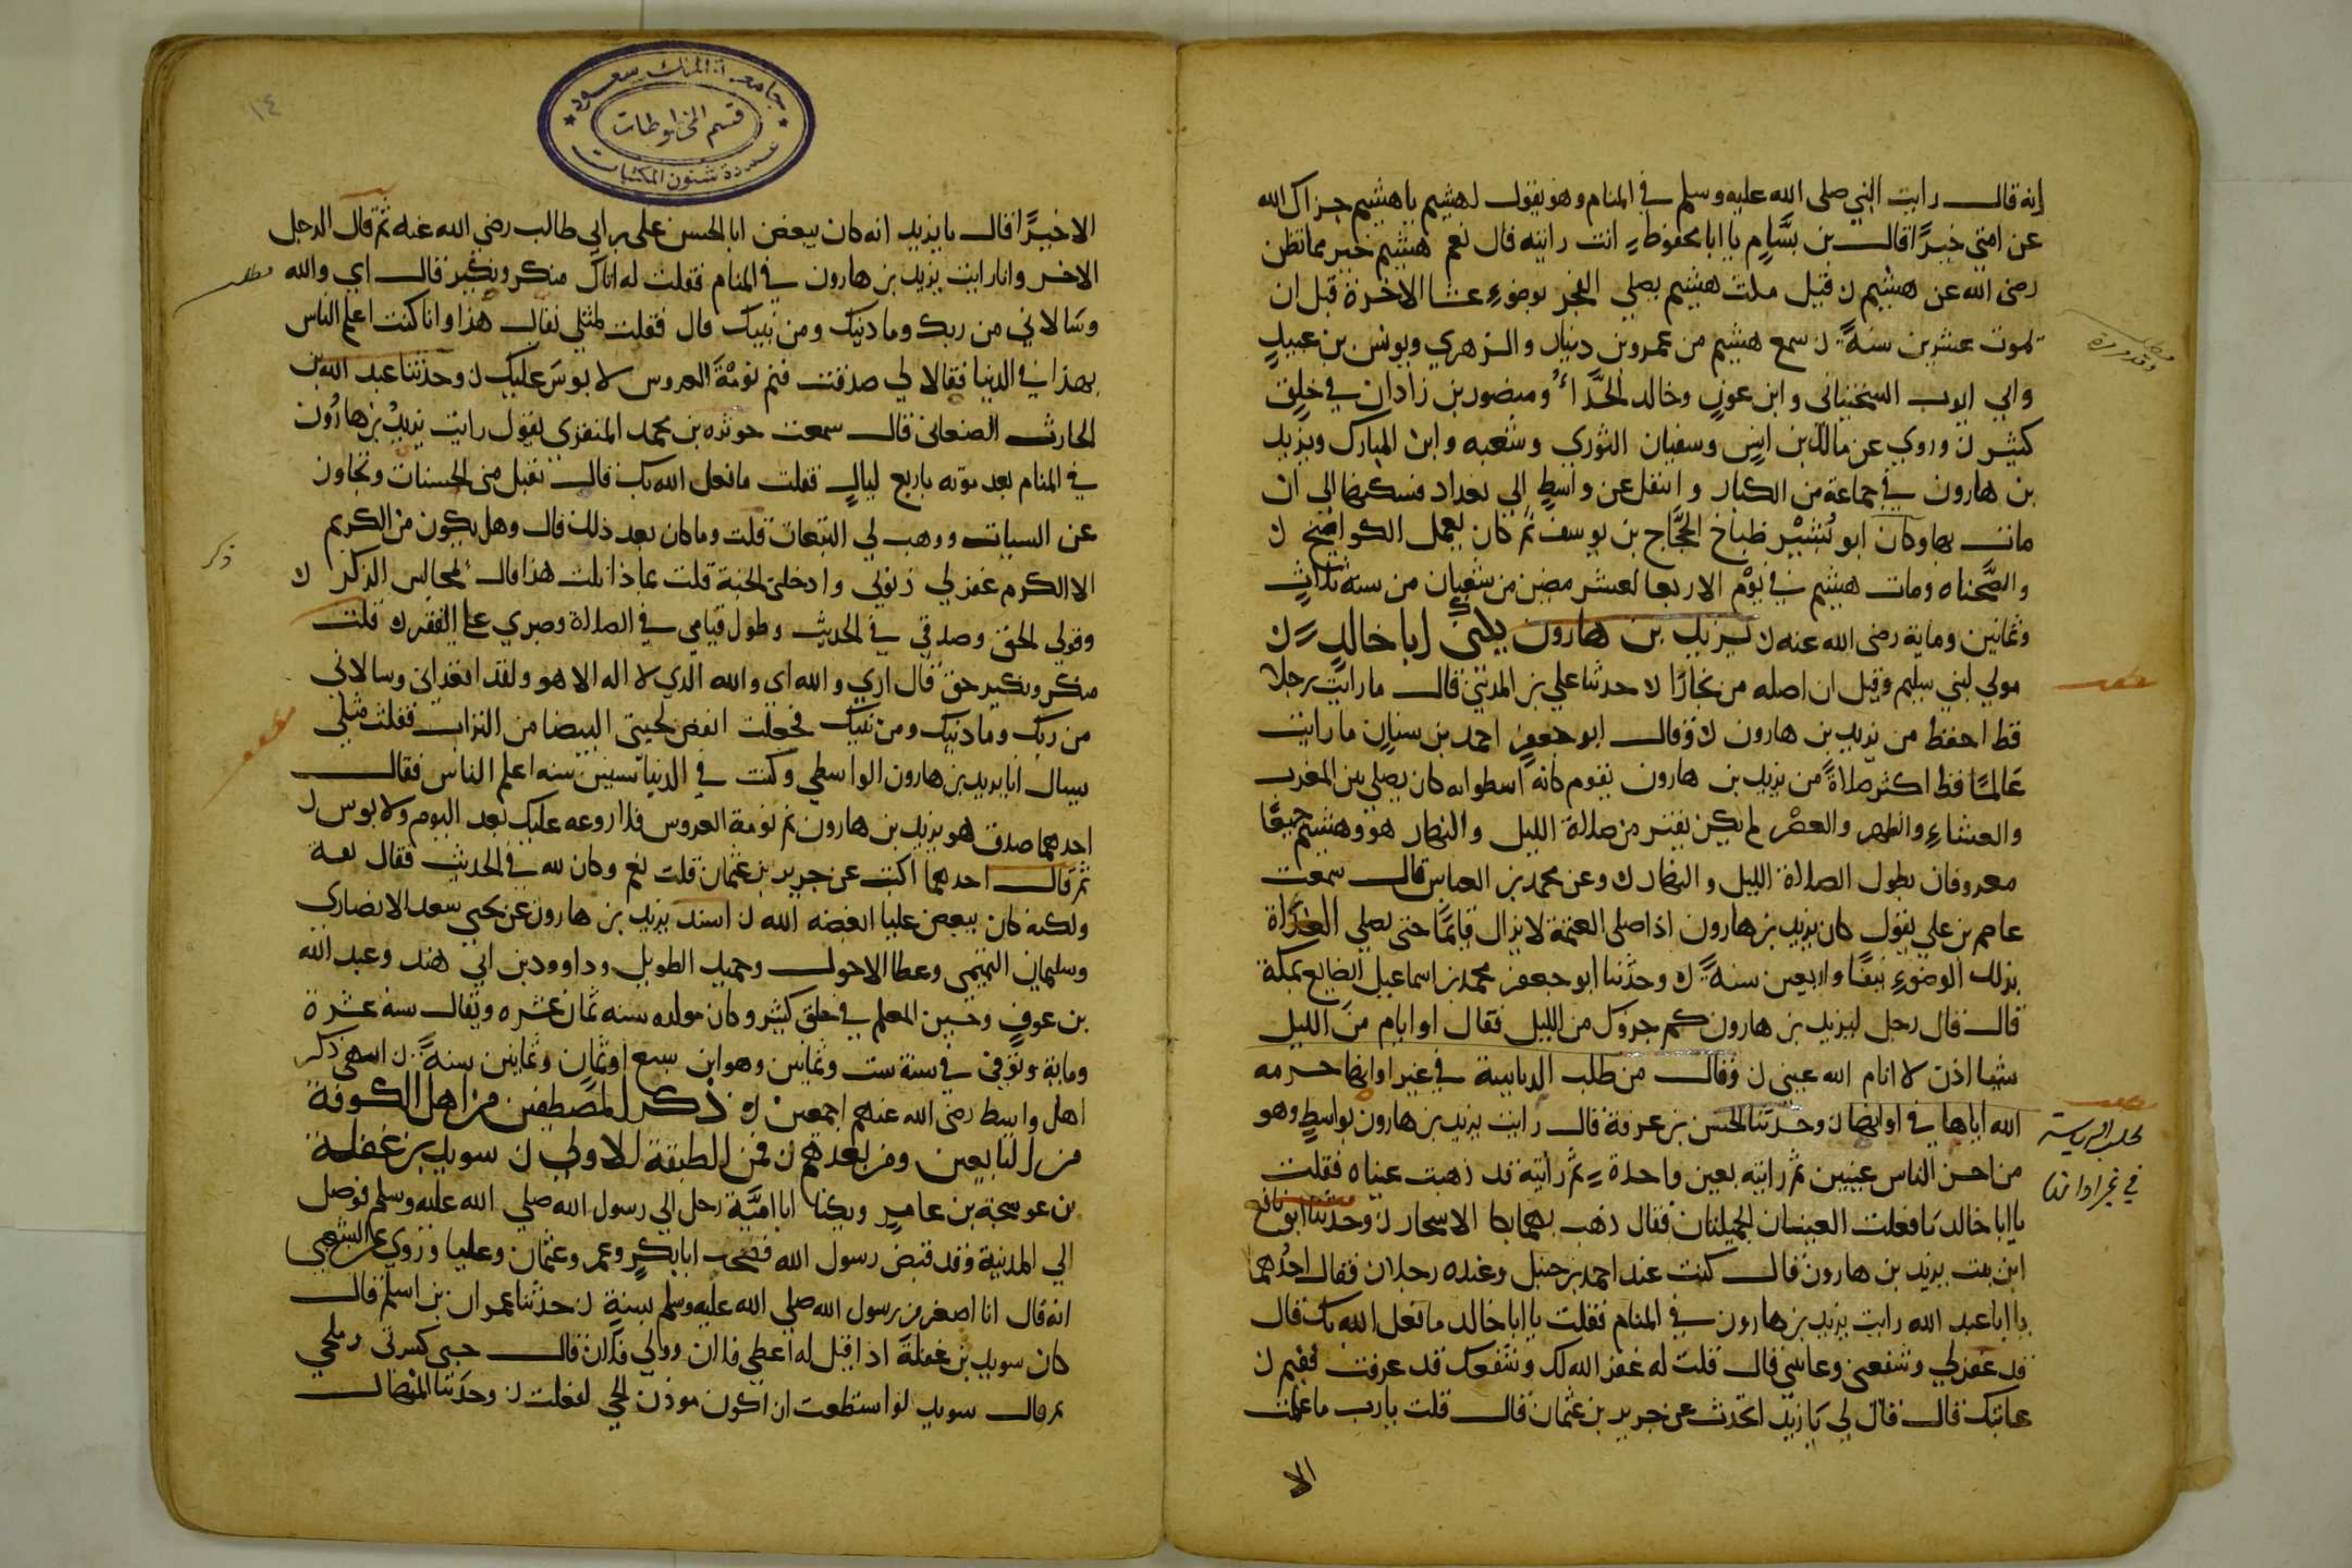 إنه قال رايت النبي صلى الله عليه وسلم في المنام وهو يقول لهشيم يا هشيم جزاك الله
عن امتي خيرًا قال بن بسَّام يا ابا محفوظ انت رايته قال نعم هشيم خير مما تظن
رضى الله عن هشيم ن قيل مكث هشيم يصلي الفجر بوضوءِ عشا الاخرة قبل ان
يموت عشرين سنةً ن سمع هشيم من عمرو بن دينار والزهري ويونس بن عبيدٍ
وابي ايوب السختياني وابن عونٍ وخالد الحذَّاءُ ومنصور بن زاذان في خلقٍ
كثيرٍ ن وروي عن مالك بن انسٍ وسفيان الثوري وشعبه وابن المبارك ويزيد
بن هارون في جماعة من الكبار وانتقل عن واسطٍ الى بغداد فسكنها الى ان
مات بها وكان ابو بُشَيْر طباخ الحجَّاج بن يوسف ثم كان يعمل الكوامخ ن
والصَّحناه ومات هشيم في يوم الاربعا لعشر مضين من شعبان من سنة ثلاثٍ
وثمانين وماية رضى الله عنه ن يزيد بن هارون يكنى ابا خالدٍ ن
مولي لبني سليم وقيل ان اصله من بخارًا ن حدثنا علي بن المديني قال ما رايت رجلا
قط احفظ من يزيد بن هارون ن وقال ابو جعفرٍ احمد بن سنانٍ ما رايت
عَالمًا قط اكثر صلاةً من يزيد بن هارون يقوم كانه اسطوانه كان يصلي بين المغرب
والعشاءِ والظهر والعصْر لم يكن يفتر من صلاة الليل والنهار هو وهشيم جميعًا
معروفان بطول الصلاة الليل والنهار ن وعن محمد بن العباس قال سمعت
عاصم بن علي يقول كان يزيد بن هارون اذا صلى العتمة لا يزال قايمًا حتى يصلي الغداة
بذلك الوضوءِ نيفًا واربعين سنةً ن وحدثنا ابو جعفر محمد بن اسماعيل الضايع بمكة
قال قال رجل ليزيد بن هارون كم جزؤك من الليل فقال اوانام من الليل
شيا اذن لا انام الله عيني ن وقال من طلب الرياسة في غير اوانها حرمه
الله اياها في اوانها ن وحدثنا الحسن بن عرفة قال رايت يزيد بن هارون بواسطٍ وهو
من احسن الناس عينين ثم رايته بعين واحدة ثم رايته قد ذهبت عيناه فقلت
يا ابا خالد ما فعلت العينان الجميلتان فقال ذهب بهما بكا الاسحار ن وحدثنا ابو نافع
ابن بنت يزيد بن هارون قال كنت عند احمد بن حنبل وعنده رجلان فقال احدُهما
يا ابا عبد الله رايت يزيد بن هارون في المنام فقلت يا ابا خالد ما فعل الله بك قال
قد غفر لي وشفعني وعاتبني قال قلت له غفر الله لك وشفعك قد عرفت ففيم ن
عاتبك قال قال لي يا يزيد اتحدث عن جرير بن عثمان قال قلت يا رب ما علمت
الا
لطلب الرياسة
في غير اوانها
الا خيرًا قال يا يزيد انه كان يبغض ابا الحسن علي بن ابي طالب رضى الله عنه ثم قال الرجل
الاخر وانا رايت يزيد بن هارون في المنام فقلت له اتاك منكر ونكير قال اي والله
وسَالاني من ربك وما دينك ومن نبيك قال فقلت لمثلي يقال هذا وانا كنت اعلم الناس
بهذا في الدنيا فقالا لي صدقت فنم نومَةَ العروس لا بوسَ عليك ن وحدثنا عبد الله بن
الحارث الصنعاني قال سمعت حوثره بن محمد المنقري يقول رايت يزيدُ بن هارُون
في المنام بعد موته باربع ليالٍ فقلت ما فعل الله بك قال تقبل منى الحسنات وتجاوز
عن السيات ووهب لي التبعات قلت وما كان بعد ذلك قال وهل يكون من الكريم
الا الكرم غفر لي ذنوبي وادخلني الجنة قلت بماذا نلت هذا قال بمجالس الذكر ن
وقولي الحق وصدقي في الحديث وطول قيامي في الصلاة وصبري على الفقر ن قلت
منكر ونكير حق قال اري والله اي والله الذي لا اله الا هو ولقد اقعداني وسالاني
من ربك وما دينك ومن نبيك فجعلت انفض لحيتي البيضا من التراب فقلت مثلي
يسال انا يزيد بن هارون الواسطي وكنت في الدنيا ستين سنه اعلم الناس فقال
احدهما صدق هو يزيد بن هارون نم نومة العروس فلا روعه عليك بعد اليوم ولا بوس ن
ثم قال احدهما اكتبت عن جرير بن عثمان قلت نعم وكان ثقة في الحديث فقال ثقة
ولكنه كان يبغض عليا ابغضه الله ن اسند يزيد بن هارون عن يحيى سعد الانصاري
وسليمان التيمى وعطا الاحول وحميد الطويل وداوود بن ابي هند وعبد الله
بن عوفٍ وحسين المعلم في خلق كثير وكان مولده سنه ثمان عشره ويقال سنة عشرة
وماية وتوفي في سنة ست وثمانين وهو ابن سبع اوثمانٍ وثمانين سنةً ن انتهى ذكر
اهل واسط رضى الله عنهم اجمعين ن ذكر المصطفين من اهل الكوفة
من التابعين ومن بعدهم ن فمن الطبقة الاولى ن سويد بن غفلة
بن عوسجة بن عامرٍ ويكنا ابا اميَّة رحل الي رسول الله صلي الله عليه وسلم فوصل
الي المدينة وقد قبض رسول الله فصحب ابا بكرٍ وعمر وعثمان وعليا وروى عن الشعبي
انه قال انا اصغر من رسول الله صلي الله عليه وسلم بسنةٍ ن حدثنا عمران بن اسلم قال
كان سويد بن غفلة اذا قيل له اعطي فلان وولي فلان قال حسبي كسرتي وملحي
ثم قال سويد لو استطعت ان اكون موذن الحي لفعلت ن وحدثنا المنهال
ذكر
١٤
جامعة الملك سعود
قسم المخطوطات
عمادة شئون المكتبات